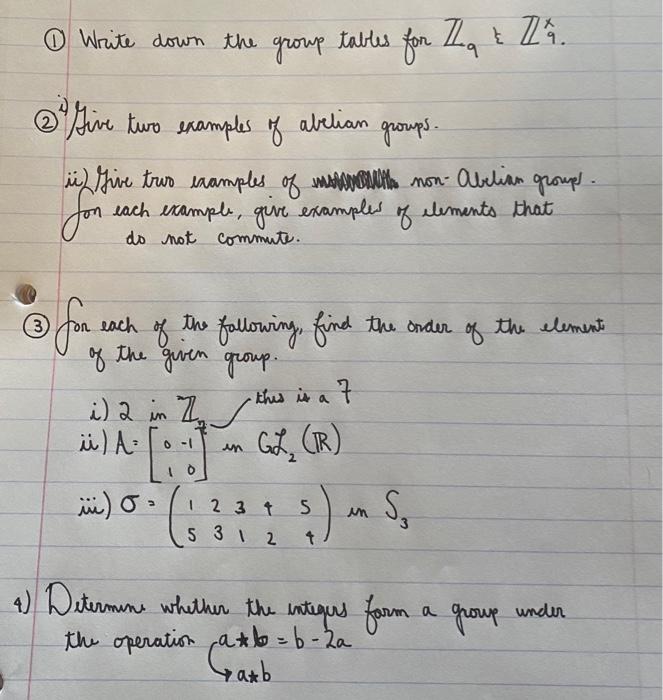 ① Write down the group tables for ℤ₉ & ℤ₉ˣ.
② i) Give two examples of abelian groups.
ii) Give two examples of non-Abelian groups.
for each example, give examples of elements that
do not commute.
③ for each of the following, find the order of the element
of the given group.
i) 2 in ℤ₇ this is a 7
ii) A = [0 -1
1 0] in GL₂(ℝ)
iii) σ = (1 2 3 4 5
5 3 1 2 4) in S₃
4) Determine whether the integers form a group under
the operation a*b = b - 2a
a*b